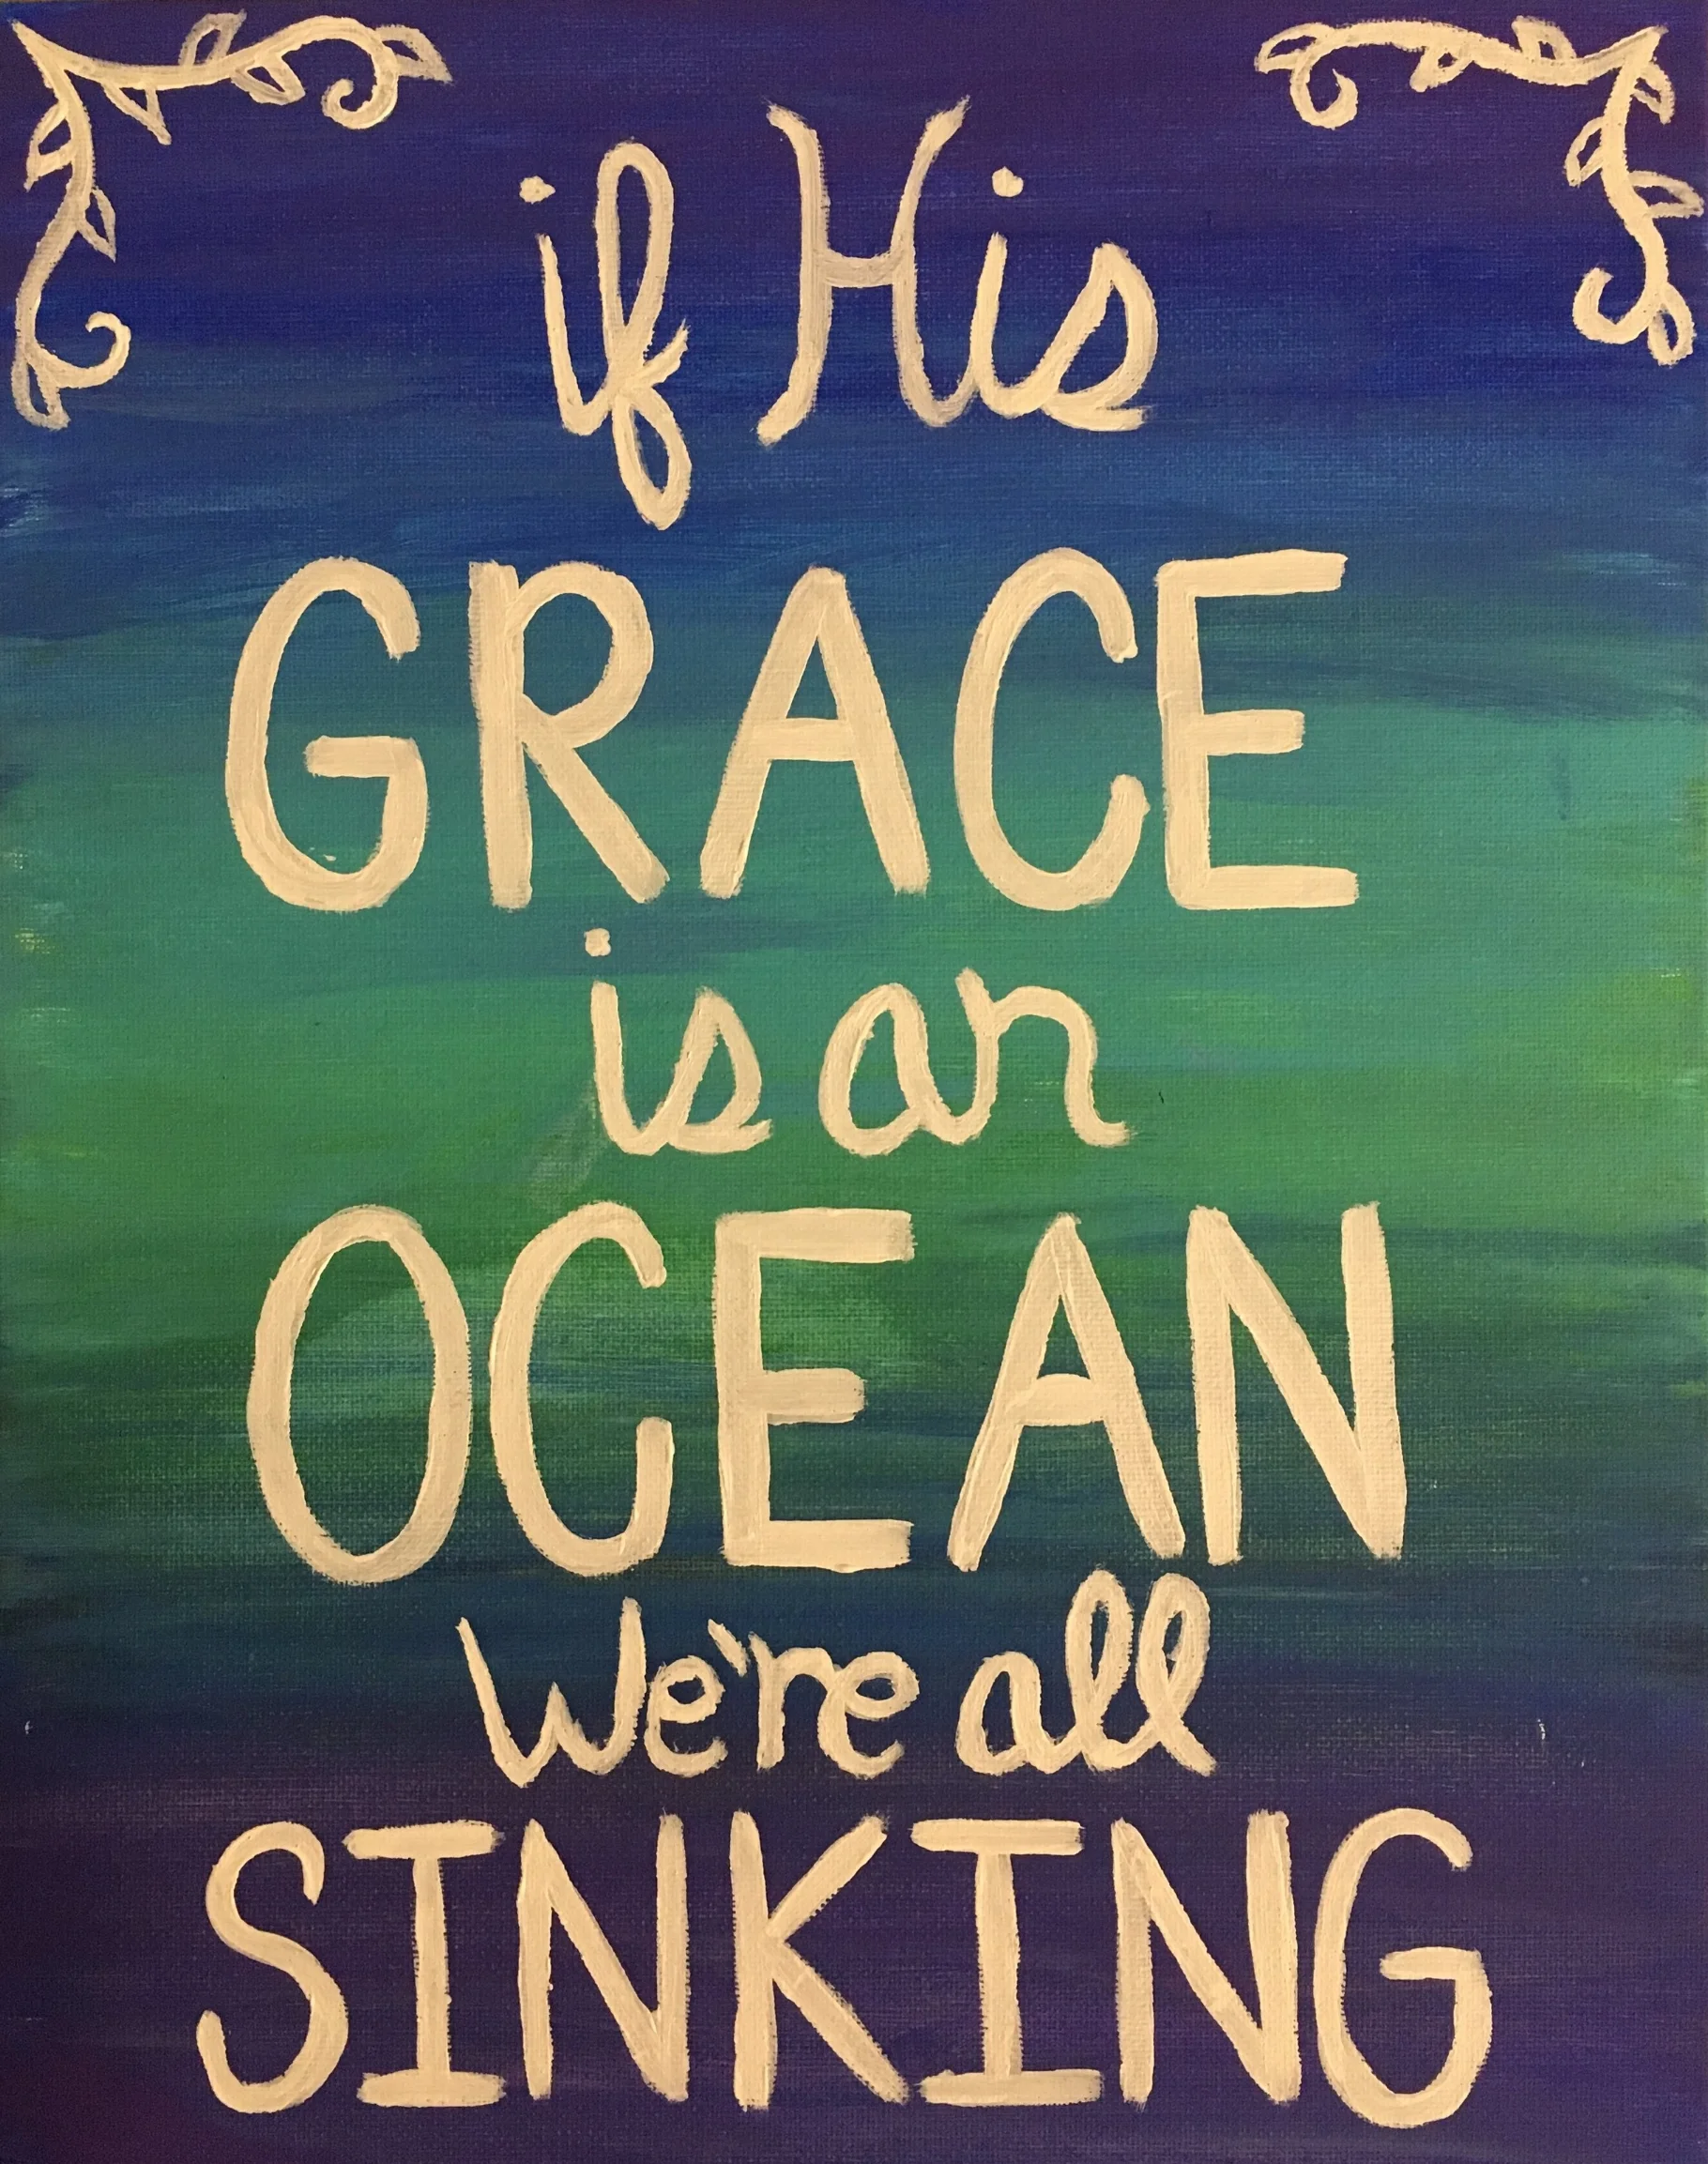 if His
GRACE
is an
OCEAN
We're all
SINKING